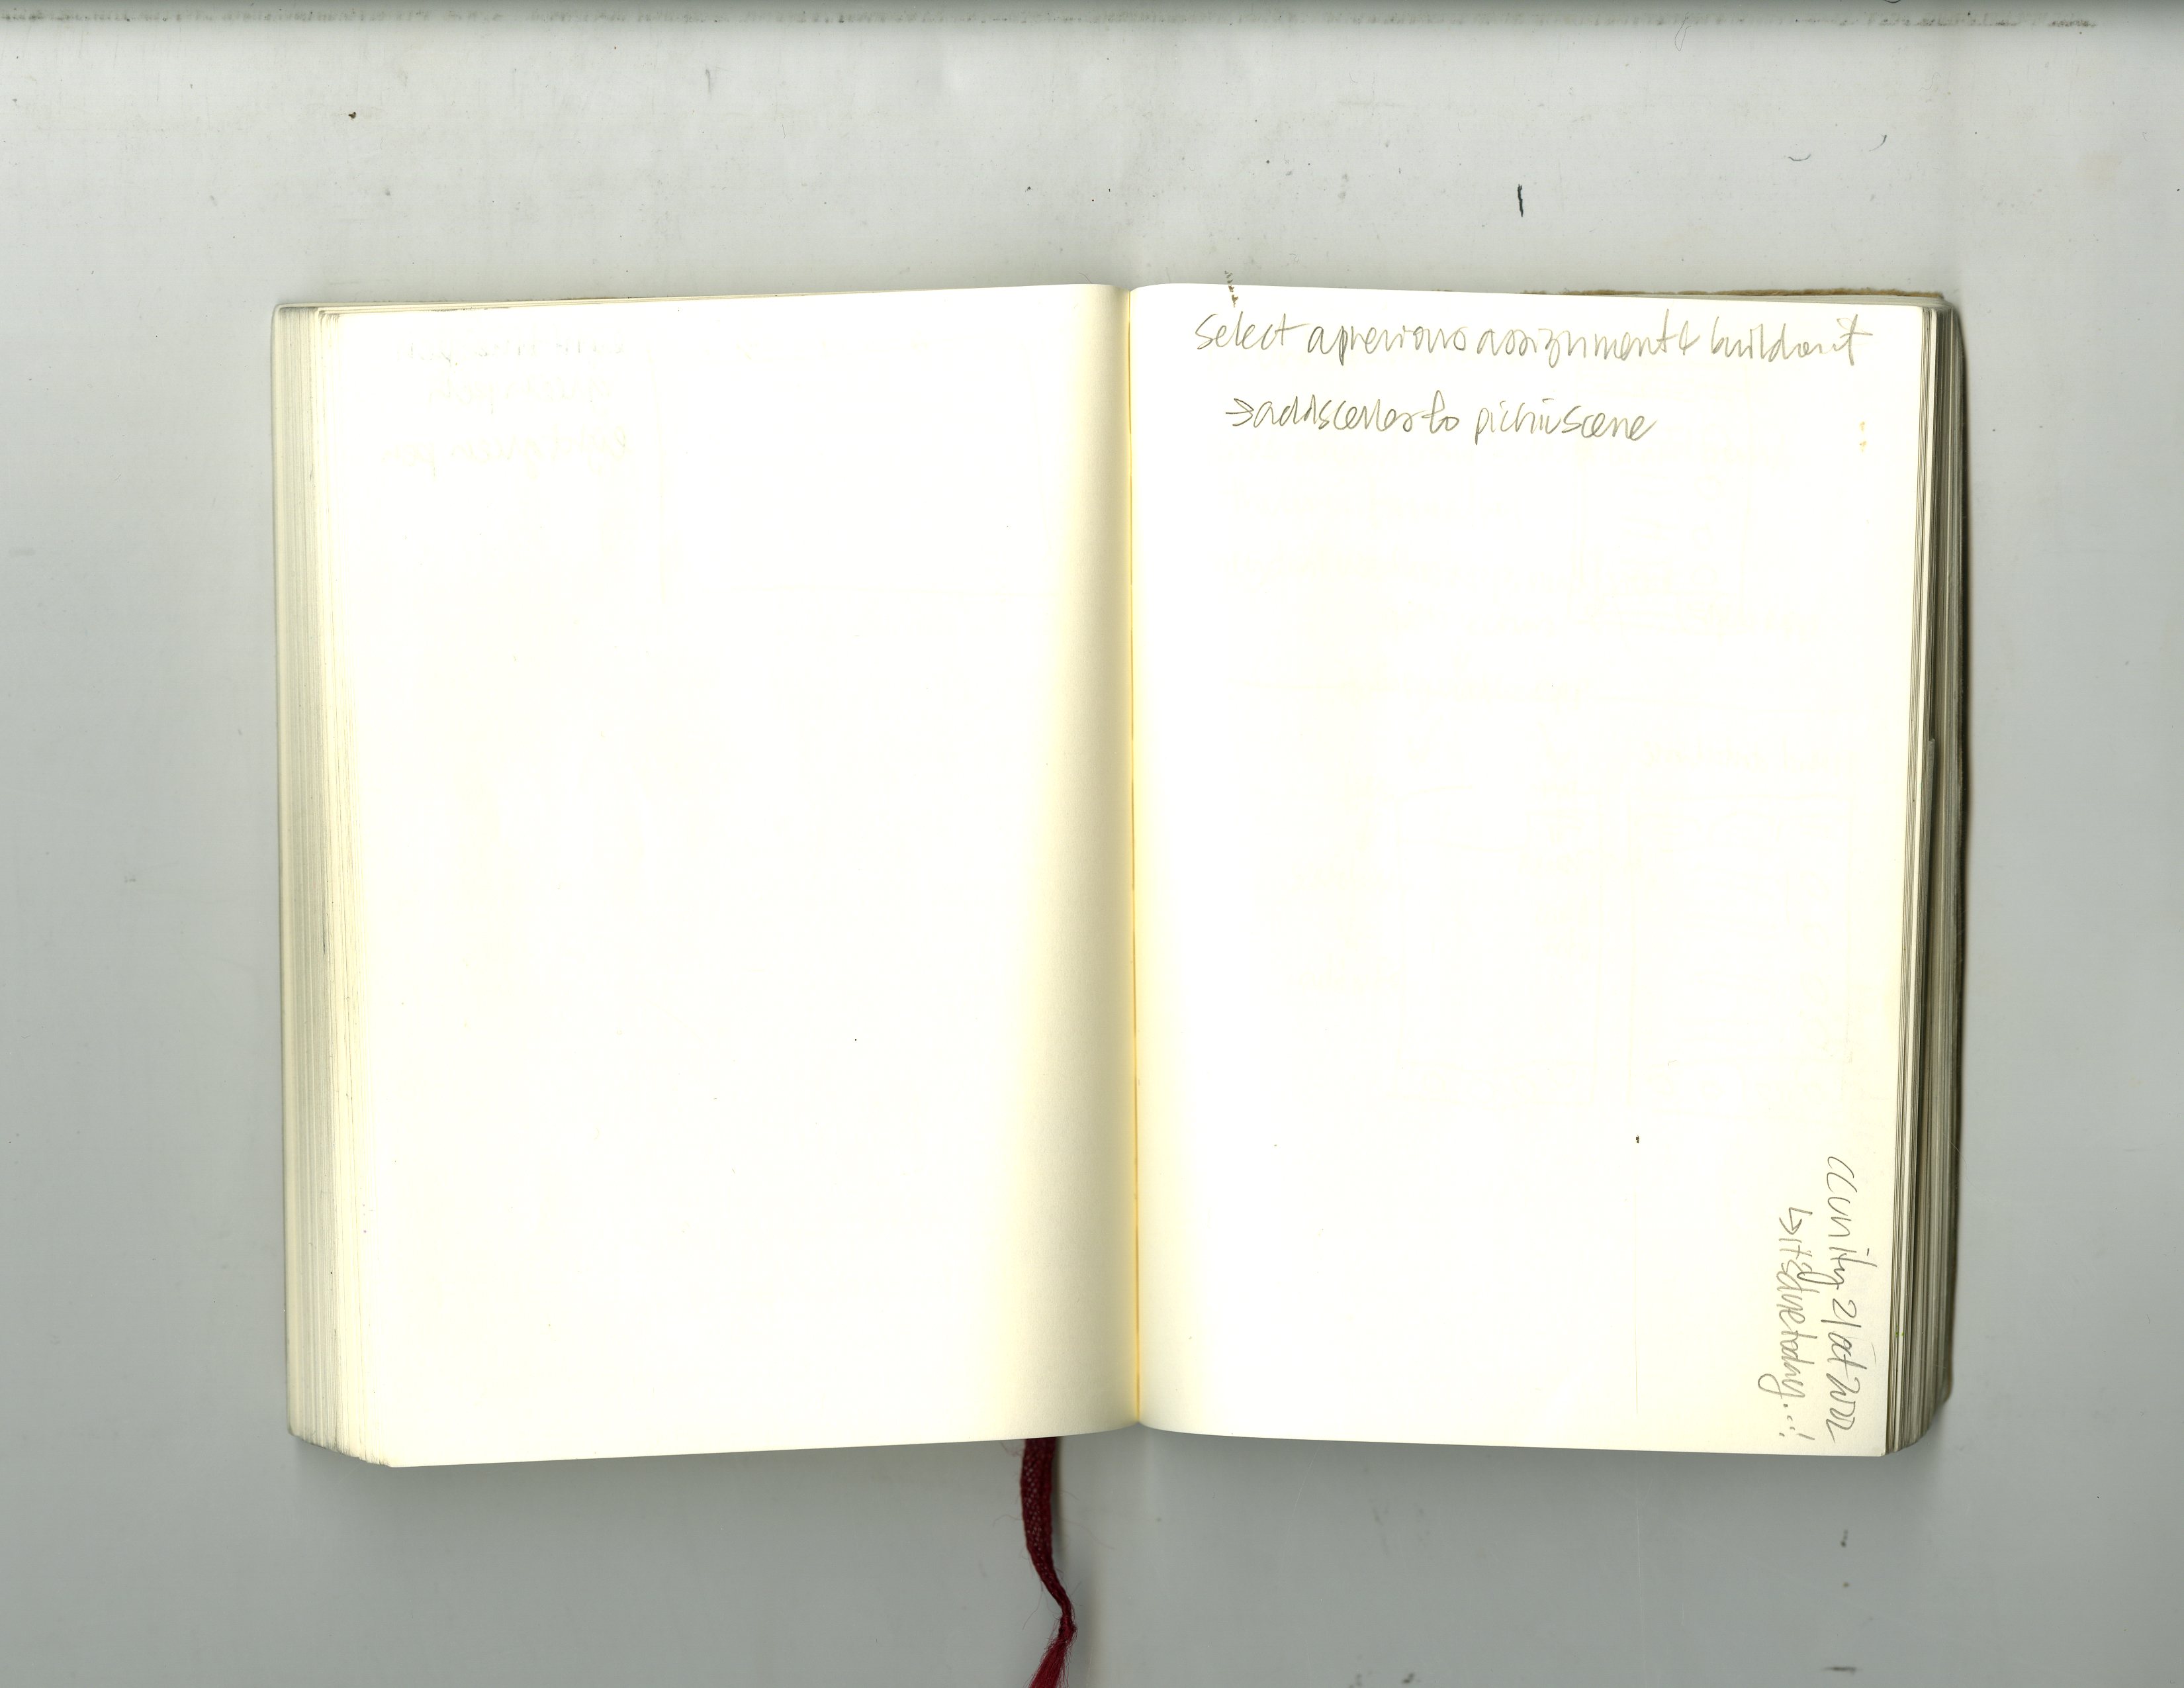 Select a previous assignment & build on it
→ add scenes to pichiu scene
CC unity 21 oct 2022
↳ it's due today...!